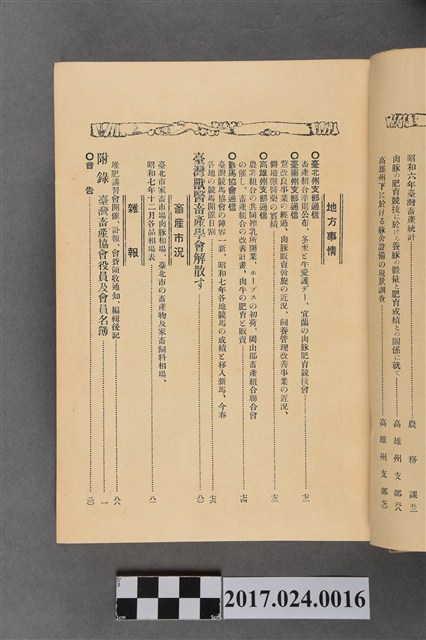 昭和六年臺灣畜產統計
農務課
肉豚の肥育競技に於ける養豚の飼量と肥育成績との關係に就て
高雄州支部
高雄州下に於ける豚舍設備の現狀調查
高雄州支部
地方事情
●臺北州支部通信
畜產組合準則公布、冬至と牛愛護デー、宜蘭の肉豚肥育競技會
●臺南州支部通信
畜產改良事業の經過、肉豚販賣斡旋の近況、飼養管理改善事業の近況、
●高雄州支部通信
農北組合の共同搾乳所開業、ホープスの初荷、岡山郡畜產組合聯合會
の催し、畜產組合の改善計畫、肉牛の肥育と販賣
●競馬協會通信
臺灣競馬協會の陣容一新、昭和七年各地競馬の成績と移入新馬、今春
各地の競馬開催日割
臺灣獸醫畜產學會解散す
畜產市況
臺北市家畜市場肉豚相場、臺北市の畜產物及家畜飼料相場、
昭和七年十二月各品相場表
八一
雜報
堆肥講習會開催、訃報、會費領收通知、編輯後記
八八
附錄
臺灣畜產協會役員及會員名簿
一
●會告
cm
2017.024.0016